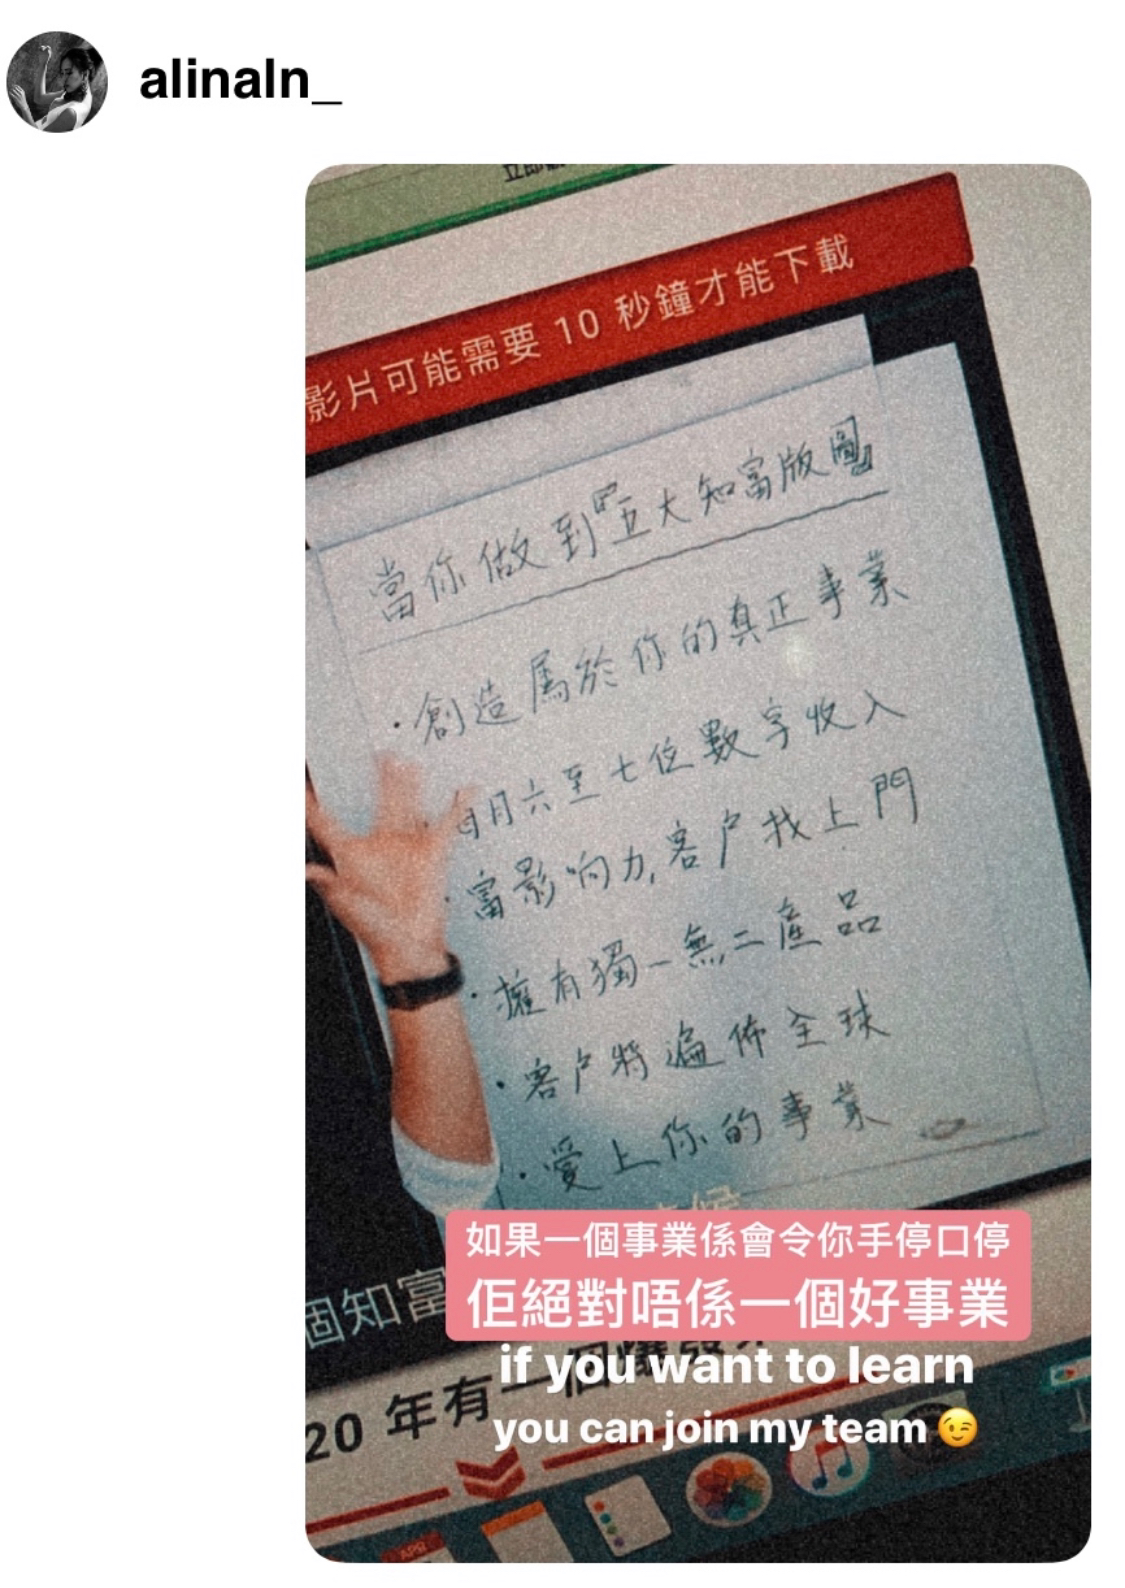 alinaln_
影片可能需要 10 秒鐘才能下載
當你做到『五大知富版圖』
·創造屬於你的真正事業
·每月六至七位數字收入
·富影响力,客户找上門
·擁有獨一無二產品
·客户將遍佈全球
·愛上你的事業
個知富
如果一個事業係會令你手停口停
佢絕對唔係一個好事業
if you want to learn
you can join my team 😉
20 年有一個爆發
APR